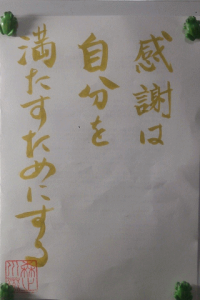 感謝は
自分を
満たすためにする